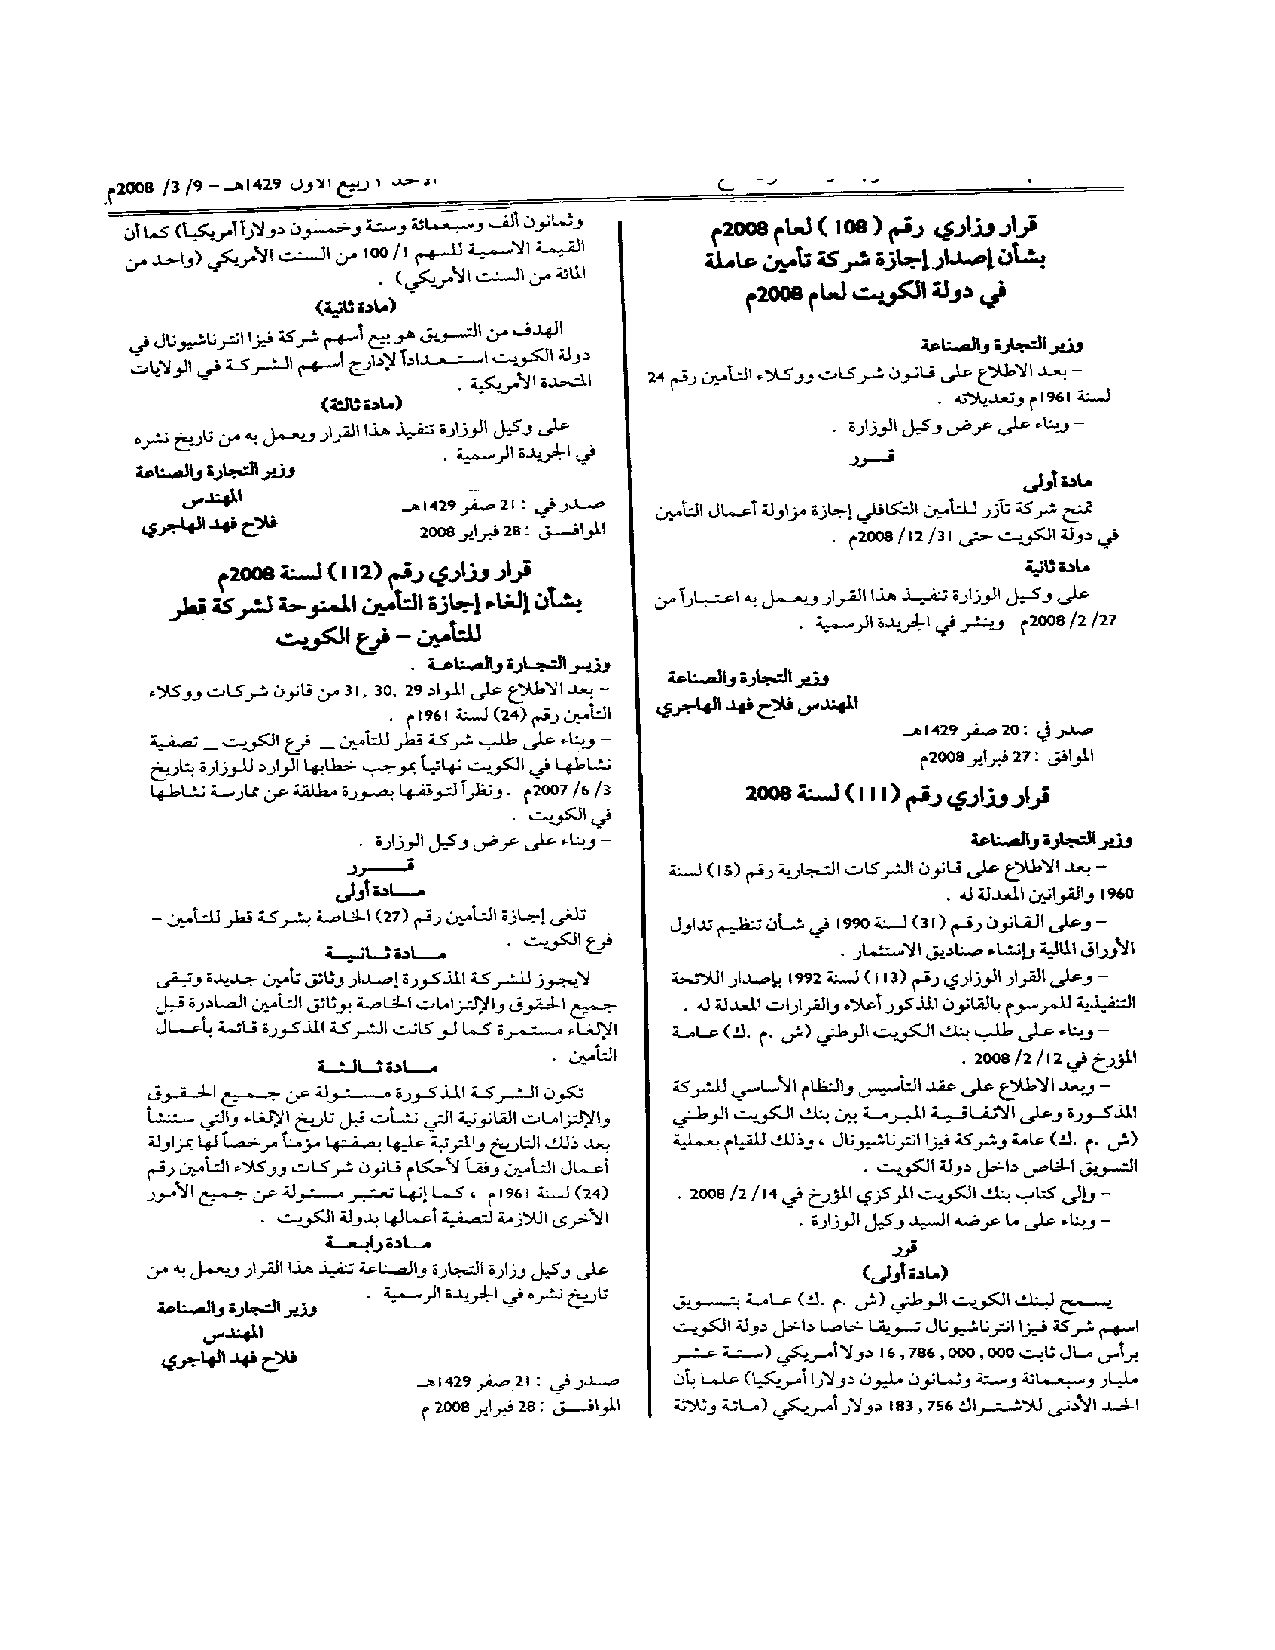 الأحد 1 ربيع الأول 1429هـ - 9/ 3/ 2008م
قرار وزاري رقم (108) لعام 2008م
بشأن إصدار إجازة شركة تأمين عاملة
في دولة الكويت لعام 2008م
وزير التجارة والصناعة
- بعد الاطلاع على قانون شركات ووكلاء التأمين رقم 24
لسنة 1961م وتعديلاته .
- وبناء على عرض وكيل الوزارة .
قـــرر
مادة أولى
تمنح شركة تآزر للتأمين التكافلي إجازة مزاولة أعمال التأمين
في دولة الكويت حتى 31/ 12/ 2008م .
مادة ثانية
على وكيل الوزارة تنفيذ هذا القرار ويعمل به اعتباراً من
27/ 2/ 2008م وينشر في الجريدة الرسمية .
وزير التجارة والصناعة
المهندس فلاح فهد الهاجري
صدر في : 20 صفر 1429هـ
الموافق : 27 فبراير 2008م
قرار وزاري رقم (111) لسنة 2008
وزير التجارة والصناعة
- بعد الاطلاع على قانون الشركات التجارية رقم (15) لسنة
1960 والقوانين المعدلة له .
- وعلى القانون رقم (31) لسنة 1990 في شأن تنظيم تداول
الأوراق المالية وإنشاء صناديق الاستثمار .
- وعلى القرار الوزاري رقم (113) لسنة 1992 بإصدار اللائحة
التنفيذية للمرسوم بالقانون المذكور أعلاه والقرارات المعدلة له .
- وبناء على طلب بنك الكويت الوطني (ش. م. ك) عامة
المؤرخ في 12/ 2/ 2008 .
- وبعد الاطلاع على عقد التأسيس والنظام الأساسي للشركة
المذكورة وعلى الاتفاقية المبرمة بين بنك الكويت الوطني
(ش. م. ك) عامة وشركة فيزا انترناشيونال ، وذلك للقيام بعملية
التسويق الخاص داخل دولة الكويت .
- وإلى كتاب بنك الكويت المركزي المؤرخ في 14/ 2/ 2008 .
- وبناء على ما عرضه السيد وكيل الوزارة .
قرر
(مادة أولى)
يسمح لبنك الكويت الوطني (ش. م. ك) عامة بتسويق
اسهم شركة فيزا انترناشيونال تسويقا خاصا داخل دولة الكويت
برأس مال ثابت 16,786,000,000 دولار أمريكي (ستة عشر
مليار وسبعمائة وستة وثمانون مليون دولارا أمريكيا) علما بأن
الحد الأدنى للاشتراك 183,756 دولار أمريكي (مائة وثلاثة
وثمانون ألف وسبعمائة وستة وخمسون دولاراً أمريكياً) كما أن
القيمة الاسمية للسهم 1/ 100 من السنت الأمريكي (واحد من
المائة من السنت الأمريكي) .
(مادة ثانية)
الهدف من التسويق هو بيع أسهم شركة فيزا انترناشيونال في
دولة الكويت استعداداً لإدارج أسهم الشركة في الولايات
المتحدة الأمريكية .
(مادة ثالثة)
على وكيل الوزارة تنفيذ هذا القرار ويعمل به من تاريخ نشره
في الجريدة الرسمية .
وزير التجارة والصناعة
المهندس
فلاح فهد الهاجري
صدر في : 21 صفر 1429هـ
الموافق : 28 فبراير 2008
قرار وزاري رقم (112) لسنة 2008م
بشأن إلغاء إجازة التأمين الممنوحة لشركة قطر
للتأمين - فرع الكويت
وزير التجارة والصناعة .
- بعد الاطلاع على المواد 29، 30، 31 من قانون شركات ووكلاء
التأمين رقم (24) لسنة 1961م .
- وبناء على طلب شركة قطر للتأمين _ فرع الكويت _ تصفية
نشاطها في الكويت نهائياً بموجب خطابها الوارد للوزارة بتاريخ
3/ 6/ 2007م . ونظراً لتوقفها بصورة مطلقة عن ممارسة نشاطها
في الكويت .
- وبناء على عرض وكيل الوزارة .
قـــــرر
مـــادة أولى
تلغى إجازة التأمين رقم (27) الخاصة بشركة قطر للتأمين -
فرع الكويت .
مـــادة ثـانـيـــة
لايجوز للشركة المذكورة إصدار وثائق تأمين جديدة وتبقى
جميع الحقوق والإلتزامات الخاصة بوثائق التأمين الصادرة قبل
الإلغاء مستمرة كما لو كانت الشركة المذكورة قائمة بأعمال
التأمين .
مـــادة ثـالـثـــة
تكون الشركة المذكورة مسئولة عن جميع الحقوق
والإلتزامات القانونية التي نشأت قبل تاريخ الإلغاء والتي ستنشأ
بعد ذلك التاريخ والمترتبة عليها بصفتها مؤمناً مرخصاً لها بمزاولة
أعمال التأمين وفقاً لأحكام قانون شركات ووكلاء التأمين رقم
(24) لسنة 1961م ، كما إنها تعتبر مسئولة عن جميع الأمور
الأخرى اللازمة لتصفية أعمالها بدولة الكويت .
مـــادة رابـعـــة
على وكيل وزارة التجارة والصناعة تنفيذ هذا القرار ويعمل به من
تاريخ نشره في الجريدة الرسمية .
وزير التجارة والصناعة
المهندس
فلاح فهد الهاجري
صدر في : 21 صفر 1429هـ
الموافق : 28 فبراير 2008 م